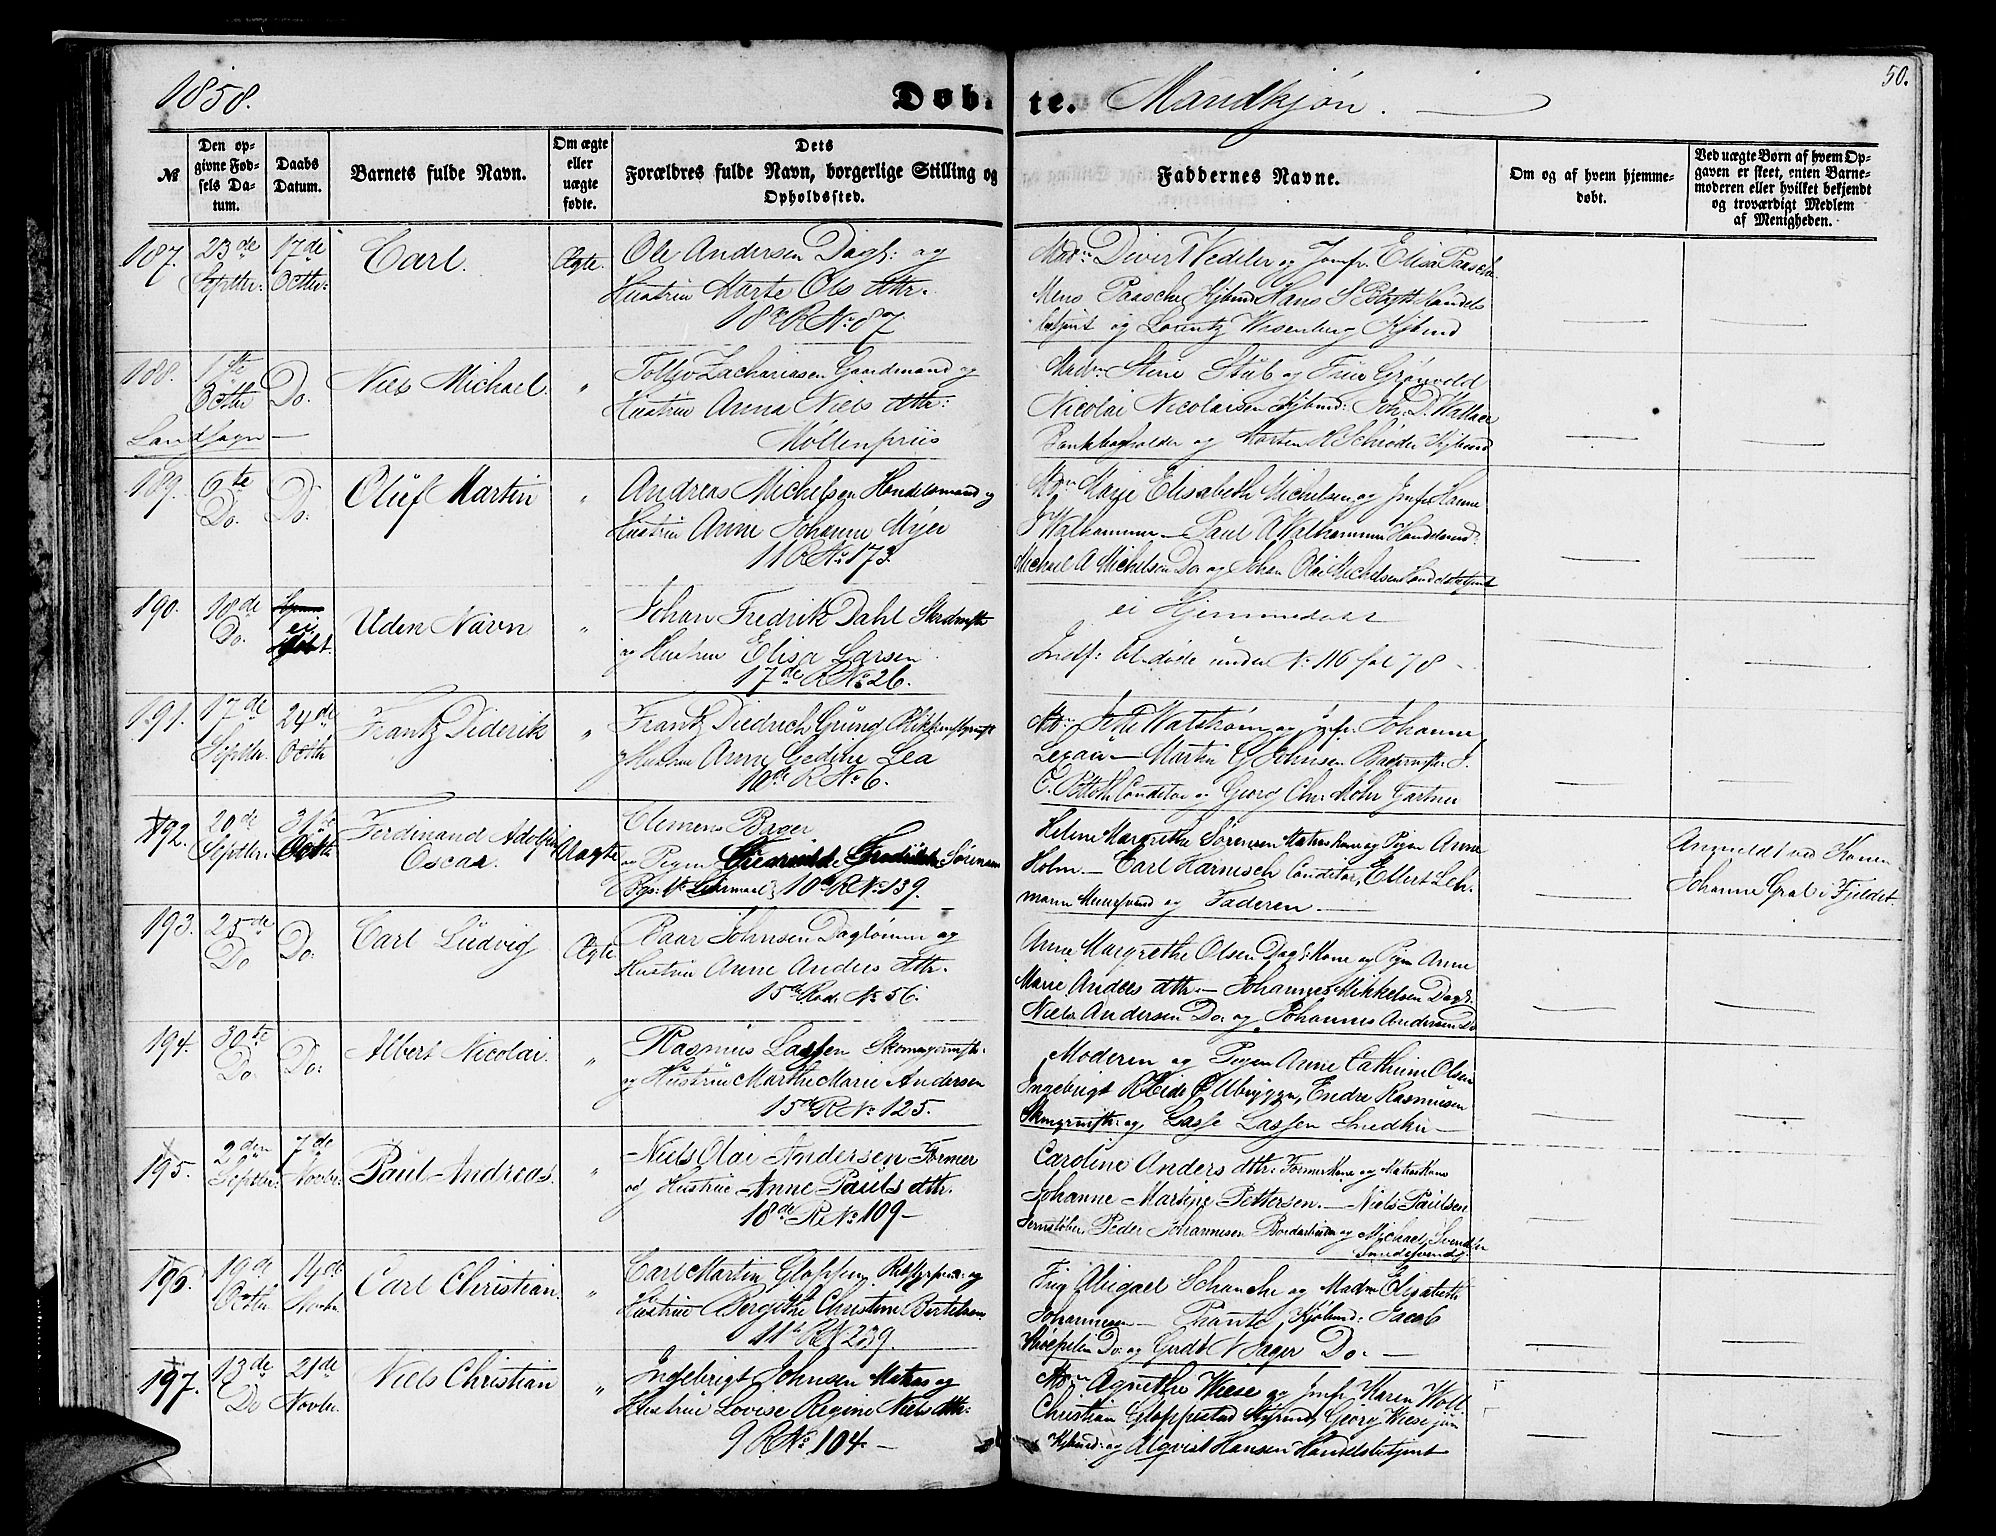 1858.
Døbte. Mandkjøn.
50.
№
Den opgivne Fødsels Datum.
Daabs Datum.
Barnets fulde Navn.
Om ægte eller uægte fødte.
Dets Forældres fulde Navn, borgerlige Stilling og Opholdssted.
Faddernes Navne.
Om og af hvem hjemmedøbt.
Ved uægte Børn af hvem Opgaven er skeet, enten Barnemoderen eller hvilket bekjendt og troværdigt Medlem af Menigheden.
187. 23de Septbr: 17de Octbr: Carl. Ægte.
Ole Andersen Dagl: og
Hustrue Marte Ols dttr.
18de R No: 87
Madm Divert Vedeler og Jomfr. Elisa Paasche
Mens Paasche Kjbmd Hans
betjent og Kjbmd
188. 1ste Octbr Do. Niels Michael. "
Landsogn
Zachariasen Gaardmand og
Hustrue Anna Niels dttr:
Møllenpriis
Madm Stine Stub og Frue Grønvold
Nicolai Nicolaisen Kjbmd: Joh. D.
Bankbogholder og Morten R Schrøder Kjbmd
189. 6te Do. Do. Oluf Martin "
Andreas Michelsen Handelsmand og
Hustrue Anne Johanne Mijer
11 R No: 173
Marie Elisabeth Michelsen og Jmfr. Hanne
Walhammer Paul A Walhammer Handelsmd:
Michael A Michelsen Do og Johan Olai Michelsen Handelsbetjent
190. 18de Do. ei døbt. Uden Navn "
Johan Fredrik Dahl
og Hustrue Elisa Larsen
17de R No: 26.
ei Hjemmedøbt
Indf: bl døde under N: 116 fol 78
191. 17de Septbr. 24de Octbr Frantz Diderik "
Frantz Diedrich Grüng
og Hustrue Anne Gedine Lea
10de R No 6.
Watstrøm og Jmfr. Johanne
Lexau — Martin G Johnsen Bagermstr: J.
C. Conditor og Georg Chr. Mohr Gartner
192. 20de Septbr: 31te Octbr. Ferdinand Adolph
Oscar. Uægte
Clemens Bager
og Pigen Fredrikke Sørensen
10de R No 139.
Helene Margrethe Sørensen Matroskone og Pigen Anne
Holm. — Carl Harnisch Conditor, Ellert Leh-
mann og Faderen. —
Anmeldt ved Konen
Johanne Gral i Fjeldet.
193. 25de Do Do: Carl Ludvig Ægte.
Paar Johnsen Daglønner og
Hustrue Anne Anders dttr.
15de Rode No 56.
Anne Margrethe Olsen Dagl: Kone og Pigen Anne
Marie Anders dttr — Johannes Mikkelsen Dagl.
Niels Andersen Do og Johannes Andersen Do
194. 30te Do. Do: Albert Nicolai. "
Rasmus Lassen Skomagermstr:
og Hustrue Marthe Marie Andersen
15de R No: 125.
Moderen og Pigen Anne Cathrine Olsen
Ingebrigt Endre Rasmusen
Skomgrmstr: og Lasse Lassen Snedker —
195. 2den Septbr: 7de Novbr: Paul Andreas. "
Niels Olai Andersen Former
og Hustrue Anne Pauls dttr.
18de R No: 109 —
Caroline Anders dttr. Formerkone og Matroskone
Johanne Martine Pettersen. — Niels Paulsen
Jernstøber, Peder Johannesen Bordarbeider og Michael Svendsen
Smedesvend.
196. 19de Octbr. 14de Novbr. Carl Christian. "
Carl Martin Gloppen og
Hustrue Bergithe Christine Bertelsen
11te R N 239.
Frue Abigael Schanche og Madm Elisabeth
Johannesen — Kjøbmd: Jacob
Do. og Gerdt N Jager Do. —
197. 13de Do 21de Novbr. Niels Christian "
Ingebrigt Johnsen Matros og
Hustrue Lovise Regine Niels dttr:
9 R No: 104. —
Agnethe Wiese og Jmfr. Karen Woll
Christian Gloppestad Styrmd, Georg Wiese jun
Kjbmd: og Alqvist Hansen Handelsbetjent